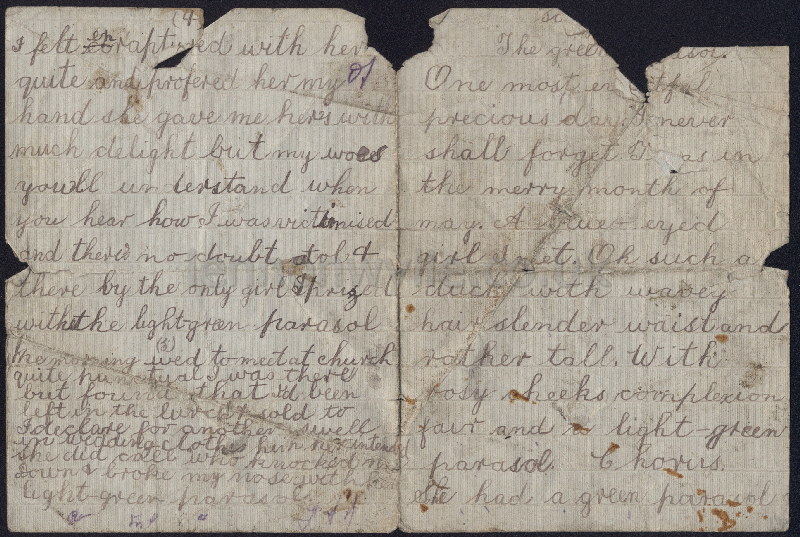 (4
I felt enraptured with her
quite and profered her my
hand she gave me hers with
much delight but my woes
you'll understand when
you hear how I was victimised
and there's no doubt stol 4
there by the only girl I prized
with the light green parasol
(3)
We morning wed to meet at church
quite punctual I was there
but found that I'd been
left in the lurch & sold to
I declare for another swell
in wedding clothes her intended
she did call who knocked me
down & broke my nose with her
light-green parasol.
The green
One most
precious day I never
shall forget I was in
the merry month of
may. A blue-eyed
girl I met. Oh such a
duck with wavey
hair slender waist and
rather tall. With
rosy cheeks complexion
fair and a light-green
parasol. Chorus.
She had a green parasol